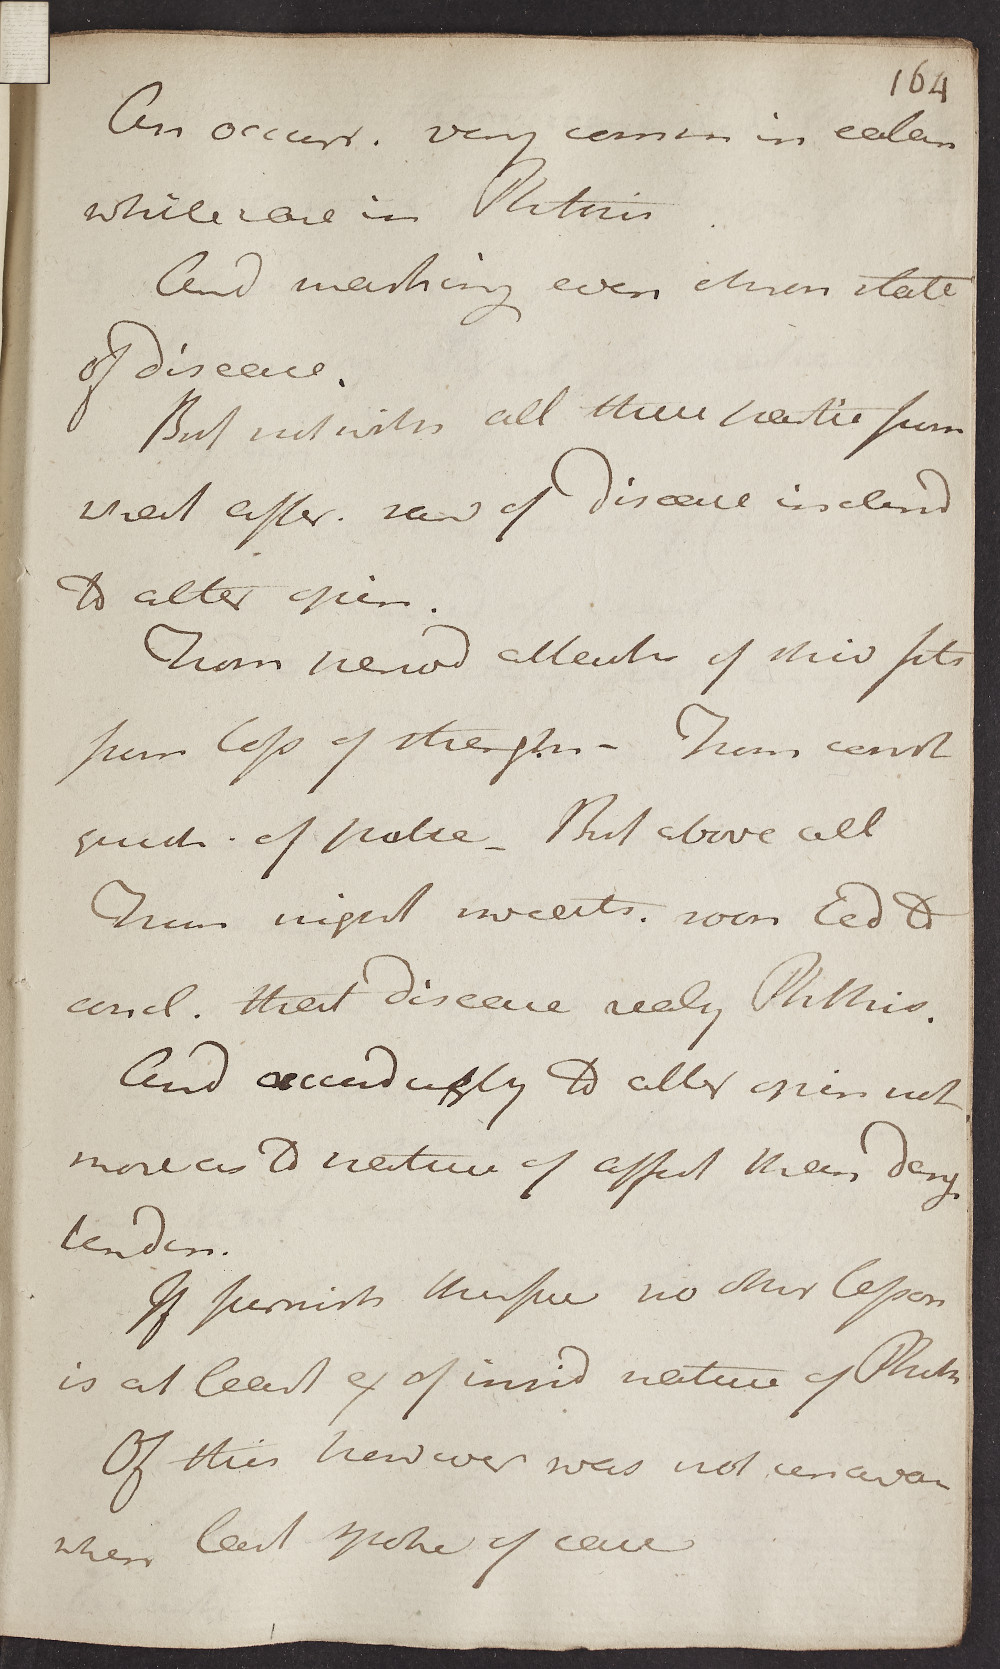 164
An occurr. very comm in catarr
while rare in Phthisis
And marking even chron state
of disease.
But notwith all these partic from
what after. saw of Disease inclend
to alter opin.
From period attacks of shiv fits
from loss of strength - From const
quick. of pulse - But above all
From night sweats. soon led to
concl. that disease realy Phthis.
And accordingly to alter opin not
more as to nature of affect than dang.
tenden.
If furnish therefore no other lesson
is at least ex of insid nature of Phth
Of this however was not unawar
when last spoke of case